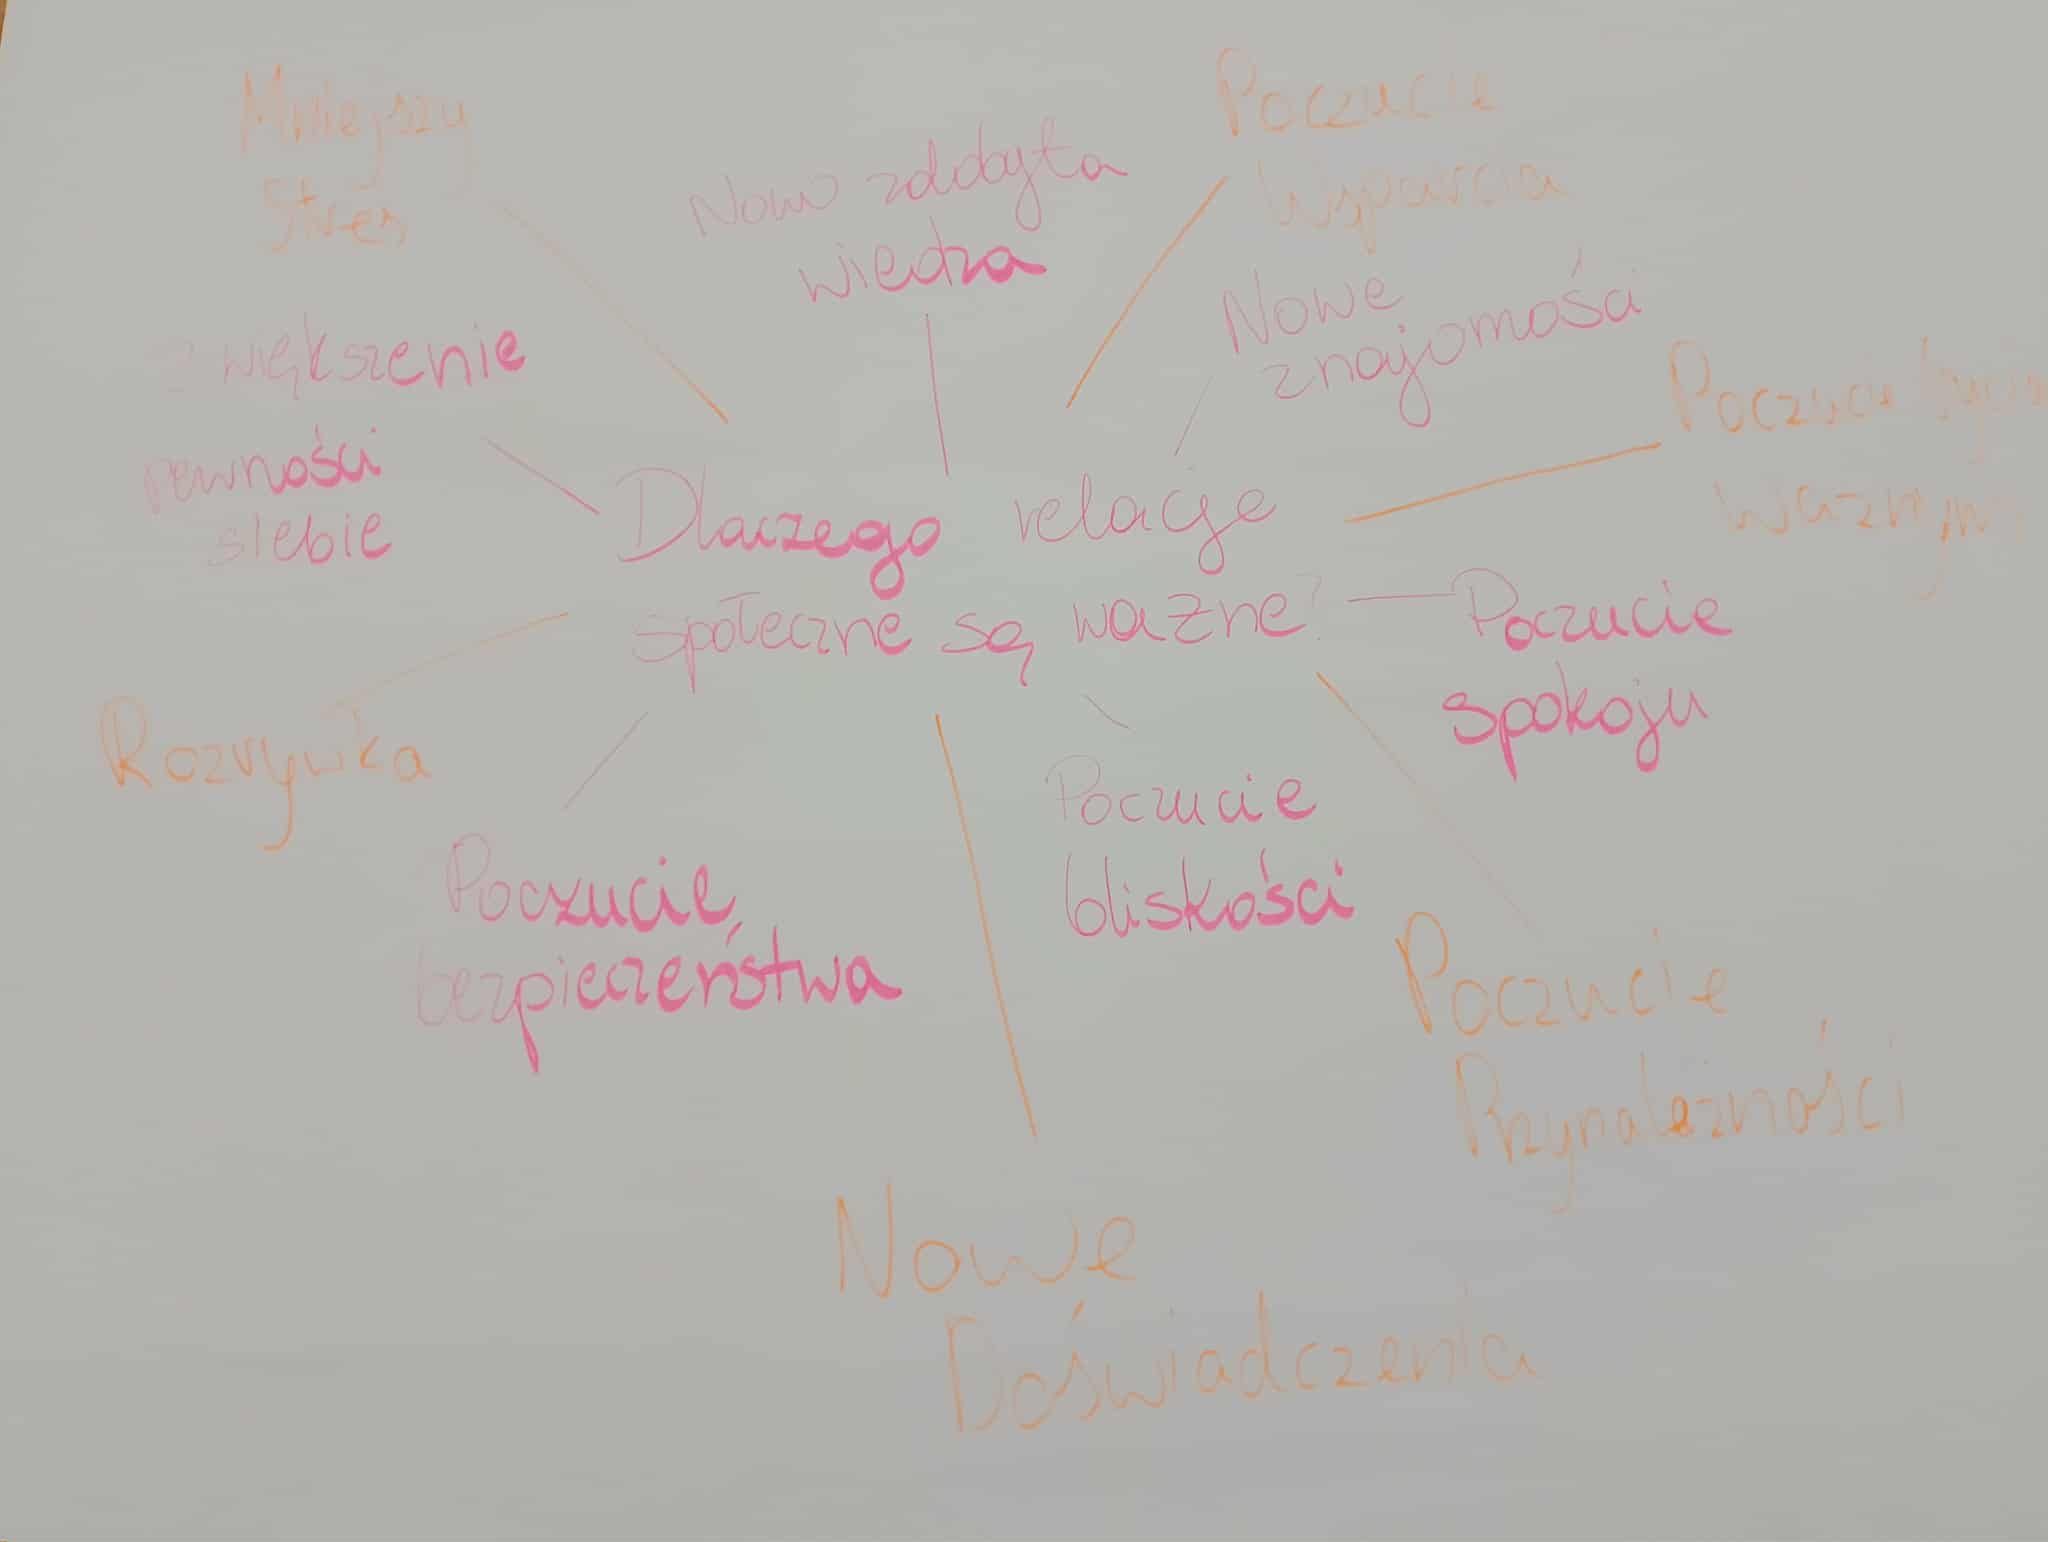 Mniejszy
Stres
Nowo zdobyta
wiedza
Poczucie
Wsparcia
Nowe
znajomości
zwiększenie
pewności
siebie
Poczucie bycia
Ważnym
Dlaczego relacje
społeczne są ważne?
Poczucie
spokoju
Rozrywka
Poczucie
bliskości
Poczucie
bezpieczeństwa
Poczucie
Przynależności
Nowe
Doświadczenia